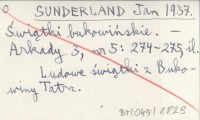 SUNDERLAND Jan 1937.
Świątki bukowińskie. –
Arkady 3, nr 5: 274-275, il.
Ludowe świątki z Buko-
winy Tatrz.
BT/049/1829